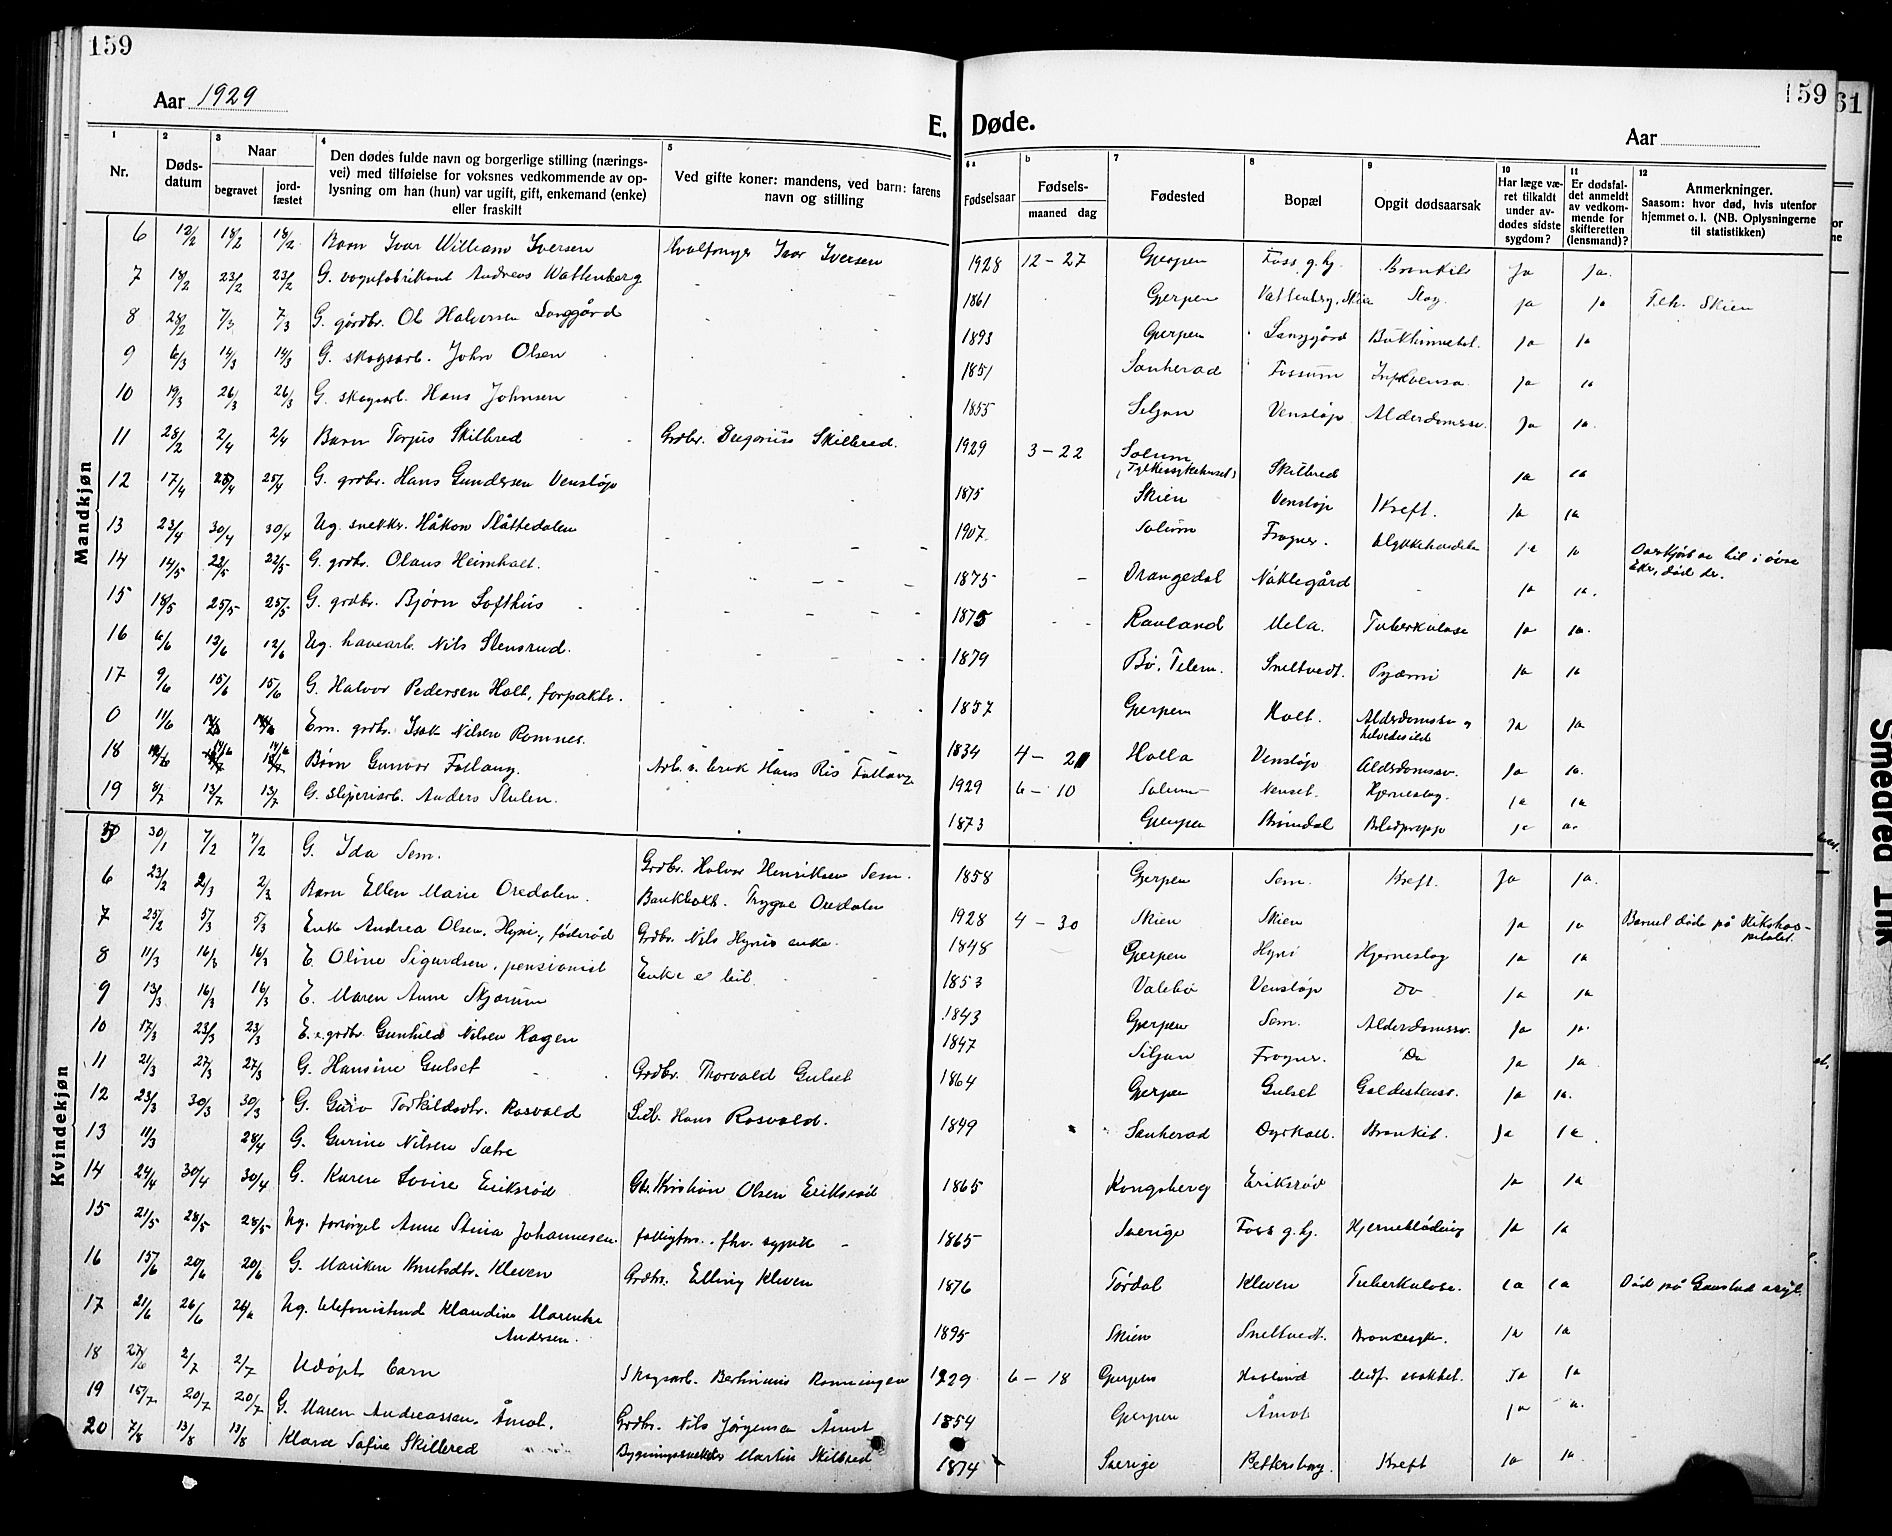 159
Aar 1929
E. Døde.
159
Aar
61
1 2 3 4 5 6a b 7 8 9 10 11 12
Nr.
Døds-
datum
Naar
begravet
jord-
fæstet
Den dødes fulde navn og borgerlige stilling (nærings-
vei) med tilføielse for voksnes vedkommende av op-
lysning om han (hun) var ugift, gift, enkemand (enke)
eller fraskilt
Ved gifte koner: mandens, ved barn: farens
navn og stilling
Fødselsaar
Fødsels-
maaned dag
Fødested
Bopæl
Opgit dødsaarsak
Har læge væ-
ret tilkaldt
under av-
dødes sidste
sygdom?
Er dødsfal-
det anmeldt
av vedkom-
mende for
skifteretten
(lensmand)?
Anmerkninger.
Saasom: hvor død, hvis utenfor
hjemmet o. l. (NB. Oplysningerne
til statistikken)
Mandkjøn
6 12/2 18/2 18/2 Barn Ivar William Iversen Hvalfanger Ivar Iversen 1928 12-27 Gjerpen Foss g.hj. Bronkit Ja ja.
7 18/2 23/2 23/2 G. vognfabrikant Andreas Wattenberg 1861 Gjerpen Vattenberg, Skien Slag ja ja Tch. Skien
8 28/2 7/3 7/3 G. gårdbr. Ol Halvorsen Langgård 1893 Gjerpen Langgård ja ja
9 6/3 14/3 14/3 G. skogsarb. John Olsen 1851 Sauherad Fossum Influensa ja ja
10 19/3 26/3 26/3 G. skogsarb. Hans Johnsen 1855 Siljan Venstøp Alderdomssv. ja ja.
11 28/2 2/4 2/4 Barn Torjus Skilbred Grdbr. Gregorius Skilbred. 1929 3-22 Solum (Fylkessykehuset) Skilbred ja ja
12 17/4 25/4 25/4 G. grdbr. Hans Gundersen Venstøp 1875 Skien Venstøp Kreft. ja ja
13 23/4 30/4 30/4 Ug. snekkr. Håkon Slåttedalen 1907 Solum Frogner. Ulykkehendelse ja ja
14 14/5 22/5 22/5 G. grdbr. Olaus Heimholt. 1875 Drangedal Naklegård ja ja.
15 18/5 25/5 25/5 G. grdbr. Bjørn Lofthus 1875 Rauland Mela. Tuberkulose ja ja.
16 6/6 12/6 12/6 Ug. havearb. Nils Stensrud. 1879 Bø, Telem. Sneltvedt. Pyæmi ja ja
17 9/6 15/6 15/6 G. Halvor Pedersen Holt, forpakter. 1857 Gjerpen Holt. Alderdomssv og helvedesild ja ja
0 11/6 Em. grdbr. Isak Nilsen Romnes. 1834 4-21 Holla Venstøp Alderdomssv. ja ja.
18 Barn Gunvor Follaug. Arb. v. bruk Hans Ris Follaug 1929 6-10 Solum Nenset. Hjerneslag. ja ja
19 8/7 13/7 13/7 G. sliperiarb. Anders Stulen. 1873 Gjerpen Strømdal Blodpropp ja
Kvindekjøn
5 30/1 7/2 7/2 G. Ida Sem. Grdbr. Halvor Henriksen Sem. 1858 Gjerpen Sem. Kreft. Ja ja.
6 23/2 2/3 2/3 Barn Ellen Marie Oredalen. Bankbokh. Trygve Oredalen 1928 4-30 Skien Skien ja ja Barnet døde på Rikshos-
pitalet.
7 25/2 5/3 5/3 Enke Andrea Olsen, Hyni, føderåd Grdbr. Nils Hynis enke. 1848 Gjerpen Hyni Hjerneslag ja ja
8 11/3 16/3 16/3 E. Oline Sigurdsen, pensionist Enke e 1853 Valebø Venstøp Do ja ja
9 13/3 16/3 16/3 E. Maren Anne Skjørum 1843 Gjerpen Sem. Alderdomssv. ja ja.
10 17/3 23/3 23/3 E. e. grdbr. Gunhild Nilsen Hagen 1847 Siljan Frogner. Do ja ja.
11 21/3 27/3 27/3 G. Hansine Gulset Grdbr. Thorvald Gulset 1864 Gjerpen Gulset ja ja.
12 23/3 30/3 30/3 G. Guro Torkildsdtr. Rosvald Hans Rosvald. 1849 Sauherad Bronkit. Ja ja.
13 11/3 28/4 G. Gurine Nilsen Sætre
14 24/4 30/4 30/4 G. Karen Lovise Eriksrød Kristian Olsen Eriksrød 1865 Kongsberg Eriksrød ja ja
15 21/5 28/5 28/5 Ug. forsørget Anne Stina Johannesen 1865 Sverige Foss g.hj. Hjerneblødning ja ja
16 15/6 20/6 20/6 G. Mariken Knutsdtr. Kleven Grdbr. Elling Kleven 1876 Tørdal Kleven Tuberkulose. ja ja Død på Gaustad asyl.
17 21/6 26/6 26/6 Ug. telefonistinde Klaudine Marenke
Andersen. 1895 Skien Sneltvedt. ja ja
18 27/6 2/7 2/7 Udøpt barn Skogsarb. Bertinius Rønningen 1929 6-18 Gjerpen Medf. svakhet. Ja ja
19 15/7 20/7 20/7 G. Maren Andreassen, Åmot. Grdbr. Nils Jørgensen Åmot 1854 Gjerpen Åmot ja
20 7/8 13/8 13/8 Klara Sofie Skilbred Bygningssnekker Martin Skilbred 1874 Sverige Pettersborg. Kreft ja ja.
Smeared Ink